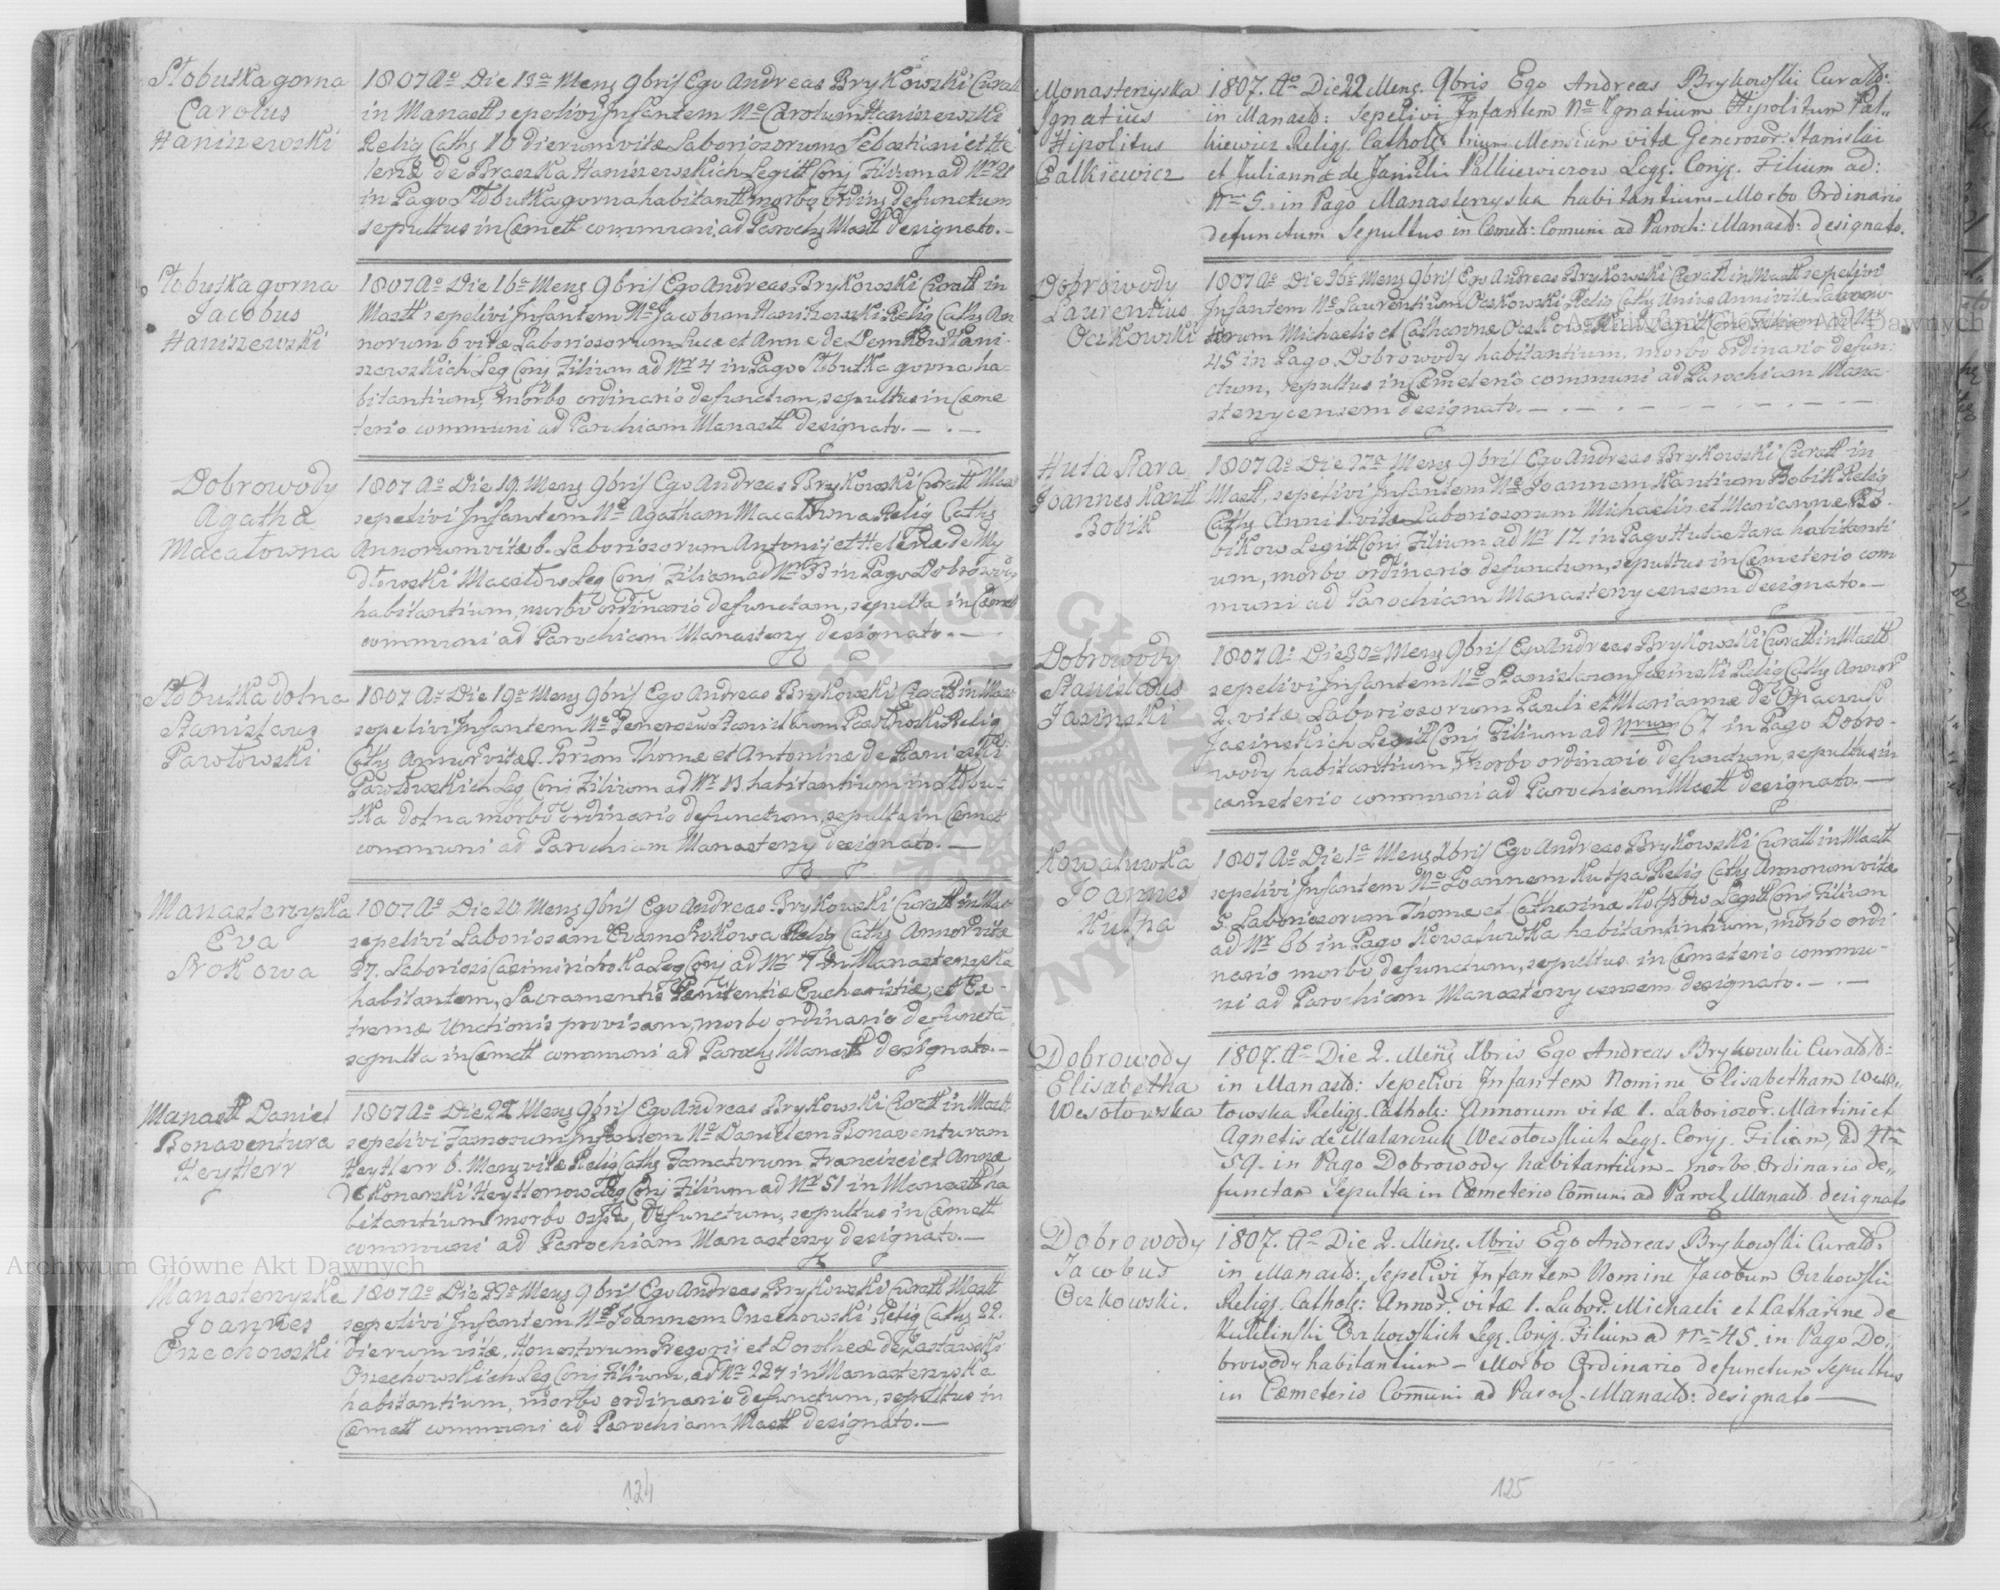 Słobutka gorna
Carolus
Haniszewski
1807 Ao Die 13a Mens 9bris Ego Andreas Brykowski Curatt
in Manastt sepelivi Infantem Ne Carolum Haniszewski
Relig Cathy 10 dierum vitæ Laboriosorum Sebastiani et He
lenæ de Braszka Haniszewskich Legitt Conj Filium ad Nr 21
in Pago Słobutka gorna habitantt morbo ordiny defunctum
sepultus in Cæmett communi, ad Parochy Mastt designato. —
Słobutka gorna
Jacobus
Haniszewski
1807 Ao Die 16a Mens 9bris Ego Andreas Brykowski Curatt in
Mastt sepelivi Infantem Ne Jacobum Haniszewski Relig Cathy An
norum 6 vitæ Laboriosorum Lucæ et Anne de Demkow Hani-
szewskich Leg Conj Filium ad Nr 4 in Pago Słobutka gorna ha-
bitantium, morbo ordinario defunctum, sepultus in Cæme
terio communi ad Parochiam Manastt designato. — . —
Dobrowody
Agatha
Macałowna
1807 Ao Die 19 Mens 9bris Ego Andreas Brykowski Curatt Mas
sepelivi Infantem Ne Agatham Macałowna Relig Cathy
Annorum vitæ 6. Laboriosorum Antonij et Helenæ de My
dłowski Macałow Leg Conj Filiam ad Nr 33 in Pago Dobrowody
habitantium, morbo ordinario defunctam, sepulta in Cæmett
communi ad Parochiam Manastery designato. —
Słobutka dolna
Stanislaus
Pawłowski
1807 Ao Die 19a Mens 9bris Ego Andreas Brykowski Curatt in Mas
sepelivi Infantem Ne Generosum Stanislaum Pawłowski Relig
Cathy Annor vitæ 2. Thomæ et Antoninæ de
Pawłowskich Leg Conj Filium ad Nr 13. habitantium in Słobu-
tka dolna morbo ordinario defunctum, sepulta in Cæmet
communi ad Parochiam Manastery designato. —
Manasterzyska
Eva
Srokowa
1807 Ao Die 20. Mens 9bris Ego Andreas Brykowski Curatt in Mas
sepelivi Laboriosam Evam Srokowa Relig Cathy Annor vitæ
27. Laboriosi Casimiri Sroka Leg Conj ad Nr 7 in Manasterzyska
habitantem, Sacramentis Pænitentiæ Eucharistiæ, et Ex-
tremæ Unctionis provisam, morbo ordinario defuncta
sepulta in Cæmett communi ad Parochy Manastt designato. —
Manastt Daniel
Bonaventura
Heytterr
1807 Ao Die 22 Mens 9bris Ego Andreas Brykowski Curatt in Mastt
sepelivi Famosum Infantem No Danielem Bonaventuram
Heytterr 6. Mens vitæ Relig Cathy Famatorum Francisci et Annæ
de Konarski Heytterrow Leg Conj Filium ad Nr 51 in Manastt ha
bitantium morbo ordy, defunctum, sepultus in Cæmett
communi ad Parochiam Manastery designato. —
Manasterzyska
Joannes
Orzechowski
1807 Ao Die 22a Mens 9bris Ego Andreas Brykowski Curatt Mastt
sepelivi Infantem Ne Joannem Orzechowski Relig Cathy 22.
dierum vitæ, Honestorum Gregorij et Dorotheæ de Zastawski
Orzechowskich Leg Conj Filium, ad Nr 224 in Manasterzyska
habitantium, morbo ordinario defunctum, sepultus in
Cæmett communi ad Parochiam Mastt designato. —
124
Monasterzyska
Ignatius
Hipolitus
Palkiewicz
1807. Ao Die 22 Mens. 9bris Ego Andreas Brykowski Curatt:
in Manastt: sepelivi Infantem Ne Ignatium Hipolitum Pal-
kiewicz Religs. Catholc trium Mensium vitæ Generosor. Stanislai
et Juliannæ de Janicki Palkiewiczow Legs. Conjs. Filium ad:
Nro 5. in Pago Manasterzyska habitantium - Morbo Ordinario
defunctum Sepultus in Cæmett: Comuni ad Paroch: Manastt: designato.
Dobrowody
Laurentius
Oczkowski
1807 Ao Die 26a Mens 9bris Ego Andreas Brykowski Curatt in Mastt sepelivi
Infantem Ne Laurentium Oczkowski Relig Cathy Unius Anni vitæ Laborio
sorum Michaelis et Catharinæ Oczkowskich Legitt Conj Filium ad Nr
45 in Pago Dobrowody habitantium, morbo ordinario defun:
ctum, sepultus in Cæmeterio communi ad Parochiam Mana-
sterycensem designato. — . — . —
Huta Stara
Joannes Kantt
Bobik
1807 Ao Die 27a Mens 9bris Ego Andreas Brykowski Curatt in
Mastt, sepelivi Infantem Ne Joannem Kantium Bobik Relig
Cathy Anni 1. vitæ Laboriosorum Michaelis et Marianne Bo-
bikow Legitt Conj Filium ad Nr 17. in Pago Huta Stara habitanti
um, morbo ordinario defunctum, sepultus in Cæmeterio com
muni ad Parochiam Manasterycensem designato. —
Dobrowody
Stanislaus
Jasinski
1807 Ao Die 30a Mens 9bris Ego Andreas Brykowski Curatt in Mastt
sepelivi Infantem Ne Stanislaum Jasinski Relig Cathy Annor
2. vitæ Laboriosorum Pauli et Mariannæ de Opaczuk
Jasinskich Legitt Conj Filium ad Nrum 67 in Pago Dobro-
wody habitantium, Morbo ordinario defunctum, sepultus in
cæmeterio communi ad Parochiam Mastt designato. —
Kowaluwka
Joannes
Kulpa
1807 Ao Die 1a Mens Xbris Ego Andreas Brykowski Curatt in Mastt
sepelivi Infantem Ne Joannem Kulpa Relig Cathy Annorum vitæ
5. Laboriosorum Thomæ et Catharinæ Kulpow Legitt Conj Filium
ad Nr 66 in Pago Kowaluwka habitantintium, morbo ordi
nario morbo defunctum, sepultus in Cæmeterio commu-
ni ad Parochiam Manasterycensem designato. — . —
Dobrowody
Elisabetha
Wesołowska
1807. Ao Die 2. Mens Xbris Ego Andreas Brykowski Curatt:
in Manastt: sepelivi Infantem Nomine Elisabetham Weso„
łowska Religs. Catholc: Annorum vitæ 1. Laboriosor. Martini et
Agnetis de Malarczuk Wesołowskich Legs. Conjs. Filiam, ad Nro
59. in Pago Dobrowody habitantium - morbo Ordinario de„
functam Sepulta in Cæmeterio Com̄uni ad Paroch Manastt designato
Dobrowody
Jacobus
Oczkowski.
1807. Ao Die 2. Mens. Xbris Ego Andreas Brykowski Curatt:
in Manastt: sepelivi Infantem Nomine Jacobum Oczkowski
Religs. Catholc: Annor. vitæ 1. Labor. Michaeli et Catharine de
Kubilinski Oczkowskich Legs. Conjs. Filium ad Nro 45. in Pago Do„
browody habitantium - Morbo Ordinario defunctum Sepultus
in Cæmeterio Com̄uni ad Paroch. Manastt: designato —
125
Archiwum Główne Akt Dawnych
Archiwum Główne Akt Dawnych